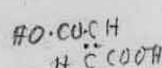 HO·CO·C H
H C COOH